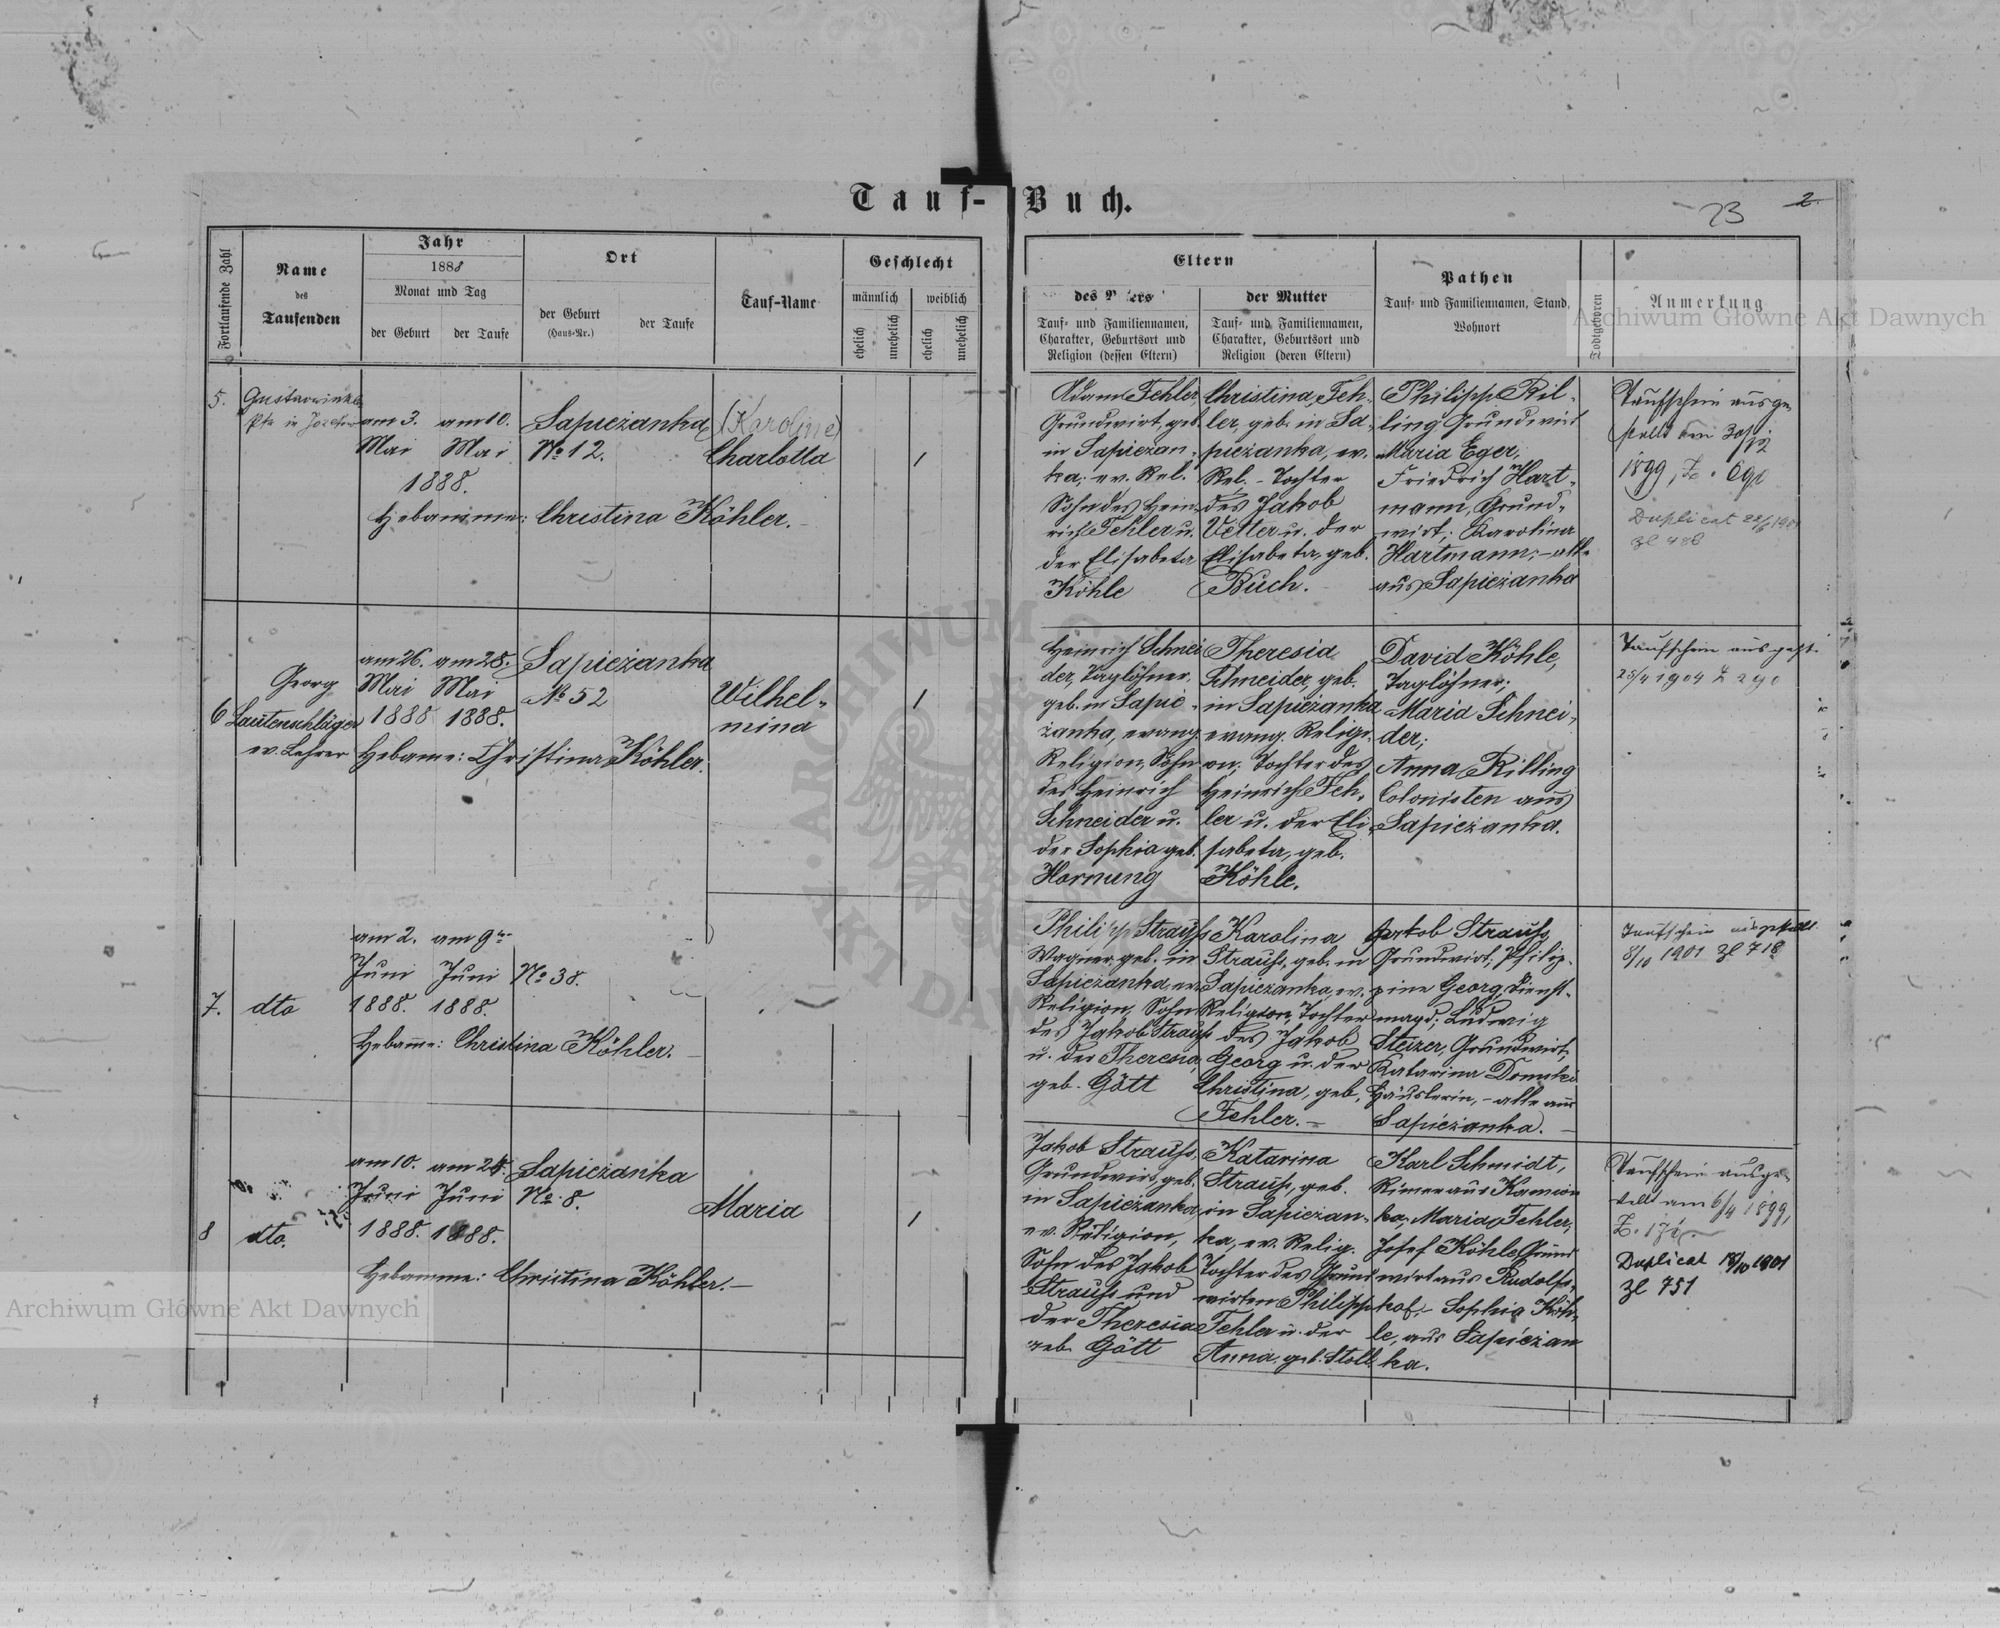 Tauf-Buch.
23
2
Fortlaufende Zahl
Name
des
Taufenden
Jahr
1888
Monat und Tag
der Geburt
der Taufe
Ort
der Geburt
(Haus-Nr.)
der Taufe
Tauf-Name
Geschlecht
männlich
weiblich
ehelich
unehelich
ehelich
unehelich
Eltern
des Vaters
Tauf- und Familiennamen,
Charakter, Geburtsort und
Religion (dessen Eltern)
der Mutter
Tauf- und Familiennamen,
Charakter, Geburtsort und
Religion (deren Eltern)
Pathen
Tauf- und Familiennamen, Stand,
Wohnort
Todtgeboren
Anmerkung
Archiwum Główne Akt Dawnych
5.
am 3.
Mai
am 10.
Mai
1888.
Hebamme: Christina Köhler.
Sapieżanka
No 12.
(Karoline)
Charlotta
1
Adam Fehler
Grundwirt, geb.
in Sapiezan-
ka; ev. Rel.
Sohn des Hein-
rich Fehler u.
der Elisabeta
Köhle
Christina Feh-
ler, geb. in Sa-
pieżanka, ev.
Rel. - Tochter
des Jakob
Vetter u. der
Elisabeta, geb.
Buch.
Philipp Ril-
ling Grundwirt
Maria Eger,
Friedrich Hart-
mann, Grund-
wirt; Karolina
Hartmann; - alle
aus Sapieżanka
Taufschein ausge-
stellt
1899, Z.
Duplicat
6
Georg
Lautenschläger
ev. Lehrer
am 26.
Mai
1888
am 28.
Mai
1888.
Hebame: Christina Köhler.
Sapieżanka
No 52
Wilhel-
mina
1
Heinrich Schnei
der, Taglöhner.
geb. in Sapie-
żanka, evang.
Religion, Sohn
des Heinrich
Schneider u.
der Sophia geb.
Hornung
Theresia
Schneider, geb.
in Sapieżanka
evang. Religi-
on; Tochter des
Heinrich Feh-
ler u. der Eli-
sabeta, geb.
Köhle.
David Köhle,
Taglöhner;
Maria Schnei-
der;
Anna Rilling
Colonisten aus
Sapieżanka.
Taufschein ausgest.
25/4 1904 Z 290
7.
dto
am 2.
Juni
1888.
am 9
Juni
1888.
Hebame: Christina Köhler.
No 38.
Philipp Strauss
Wagner geb. in
Sapieżanka, ev.
Religion, Sohn
des Jakob Strauss
u. der Theresia,
geb. Gött
Karolina
Strauss, geb. in
Sapieżanka, ev.
Religion, Tochter
des Jakob
Georg u. der
Christina, geb.
Fehler. -
Jakob Strauss,
Grundwirt; Philip-
pine Georg, Dienst-
magd; Ludwig
Steizer, Grundwirt,
Katarina
Häuslerin, - alle aus
Sapieżanka. -
Taufschein ausgestellt
8/10 1901 Zl 718
8
dto.
am 10.
Juni
1888.
am 24.
Juni
1888.
Hebamme: Christina Köhler. -
Sapieżanka
No 8.
Maria
1
Jakob Strauss,
Grundwirt, geb.
in Sapieżanka,
ev. Religion,
Sohn des Jakob
Strauss und
der Theresia
geb. Gött
Katarina
Strauss, geb.
in Sapiezan-
ka, ev. Relig.
Tochter des Grund
wirten Philipp
Fehler u. der
Anna, geb. Stoll
Karl Schmidt,
Rimer aus Kamion
ka; Maria Fehler,
Josef Köhle Grund
wirt aus Rudolfs-
hof; - Sophia Köh-
le, aus Sapieżan
ka.
Taufschein ausge-
stellt am 6/4 1899,
Duplicat 18/10 1901
Zl 751
Archiwum Główne Akt Dawnych
ARCHIWUM
AKT DAWNYCH